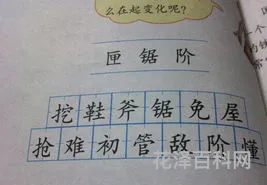 么在起变化呢？
匣 锯 阶
挖鞋斧锯免屋
抢难初管敌阶懂
花泽百科网